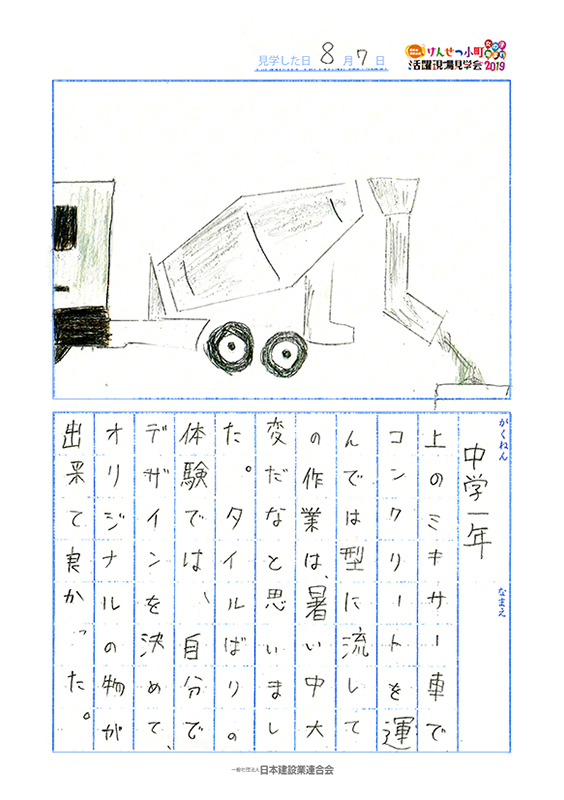 見学した日 8月7日
けんせつ小町
活躍現場見学会2019
がくねん
中学一年
なまえ
上のミキサー車で
コンクリートを運
んでは型に流して
の作業は、暑い中大
変だなと思いまし
た。タイルばりの
体験では、自分で
デザインを決めて、
オリジナルの物が
出来て良かった。
一般社団法人日本建設業連合会